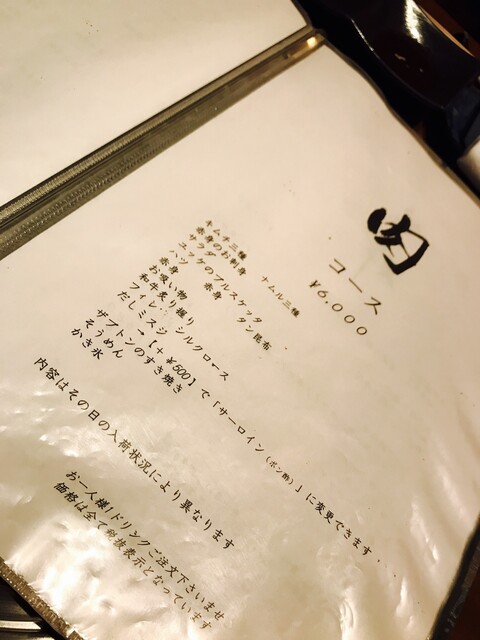 コース
¥6,000
キムチ三種 ナムル三種
赤身のお刺身
サラダ
ユッケのブルスケッタ
ハツ 赤身 タン昆布
赤身
お吸い物
和牛炙り握り
フィレ シルクロース
だしミスジ → 【+¥500】で「サーロイン(ポン酢)」に変更できます
ザブトンのすき焼き
そうめん
かき氷
内容はその日の入荷状況により異なります
お一人様1ドリンクご注文下さいませ
価格は全て税抜表示となっています